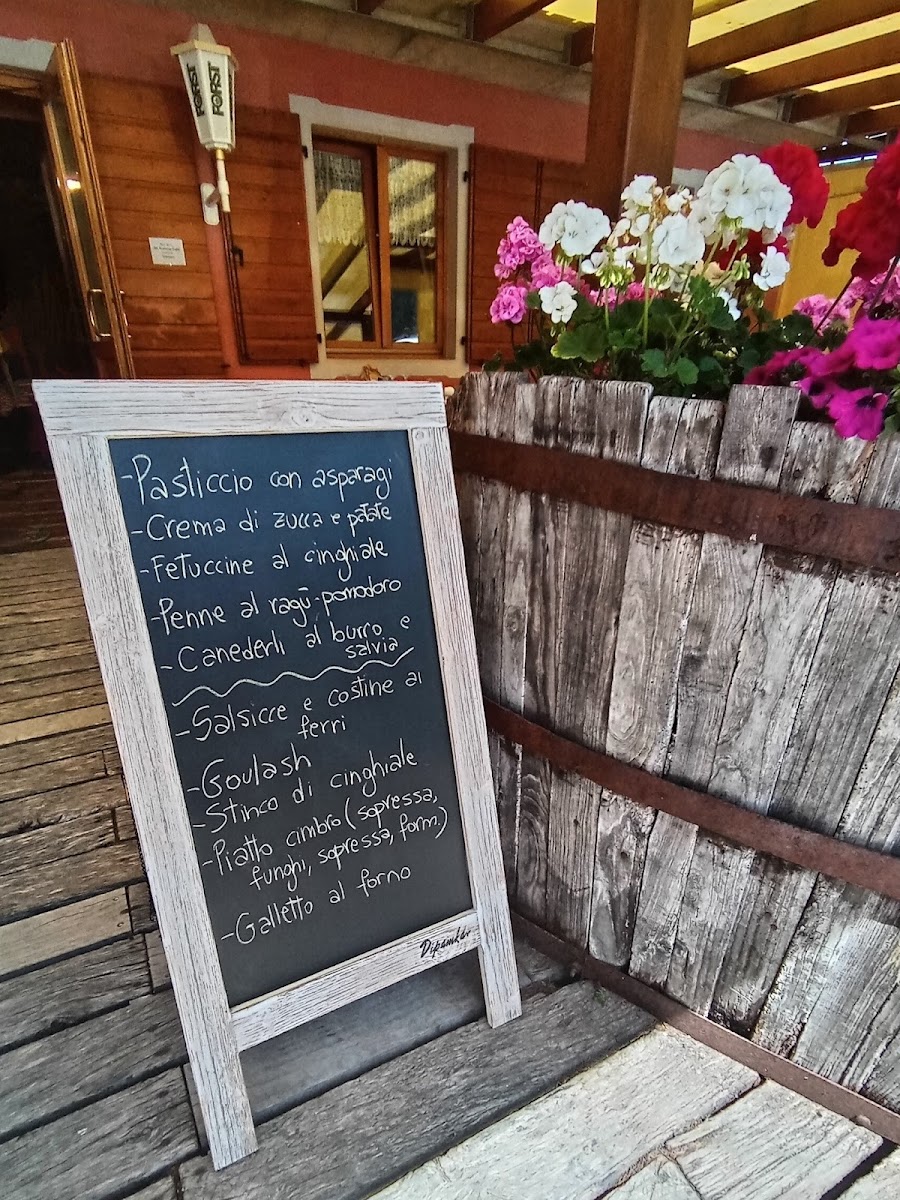 FORST FORST
-Pasticcio con asparagi
-Crema di zucca e patate
-Fetuccine al cinghiale
-Penne al ragù-pomodoro
-Canederli al burro e
salvia
-Salsicce e costine ai
ferri
-Goulash
-Stinco di cinghiale
-Piatto cimbro (sopressa,
funghi, sopressa, form.)
-Galletto al forno
Dipankar